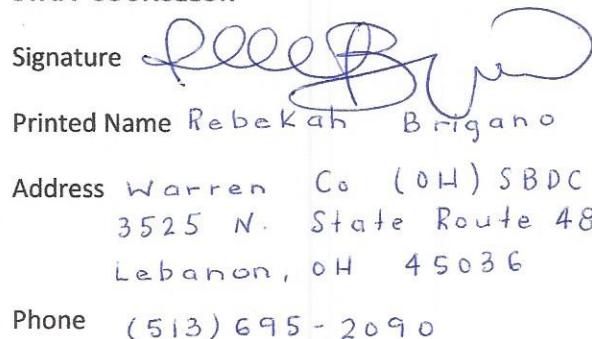 Signature
Printed Name Rebekah Brigano
Address Warren Co (OH) SBDC
3525 N. State Route 48
Lebanon, OH 45036
Phone (513) 695-2090